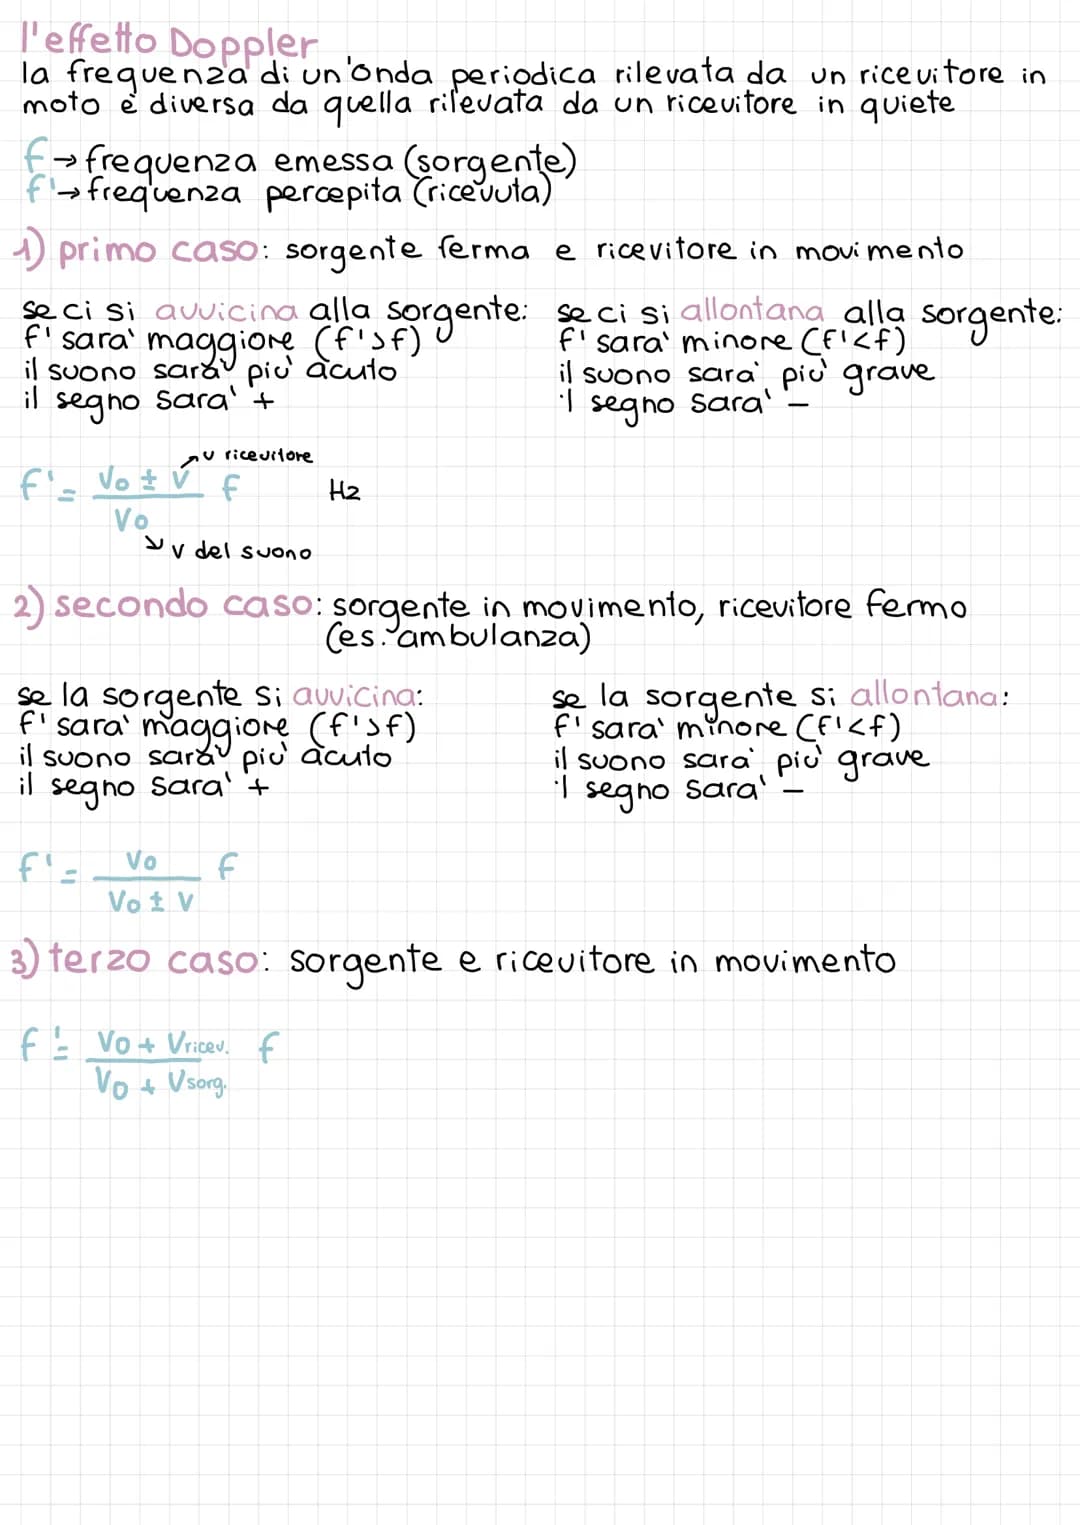 l'effetto Doppler
la frequenza di un'onda periodica rilevata da un ricevitore in
moto è diversa da quella rilevata da un ricevitore in quiete
f → frequenza emessa (sorgente)
f' → frequenza percepita (ricevuta)
1) primo caso: sorgente ferma e ricevitore in movimento
se ci si avvicina alla sorgente:
f' sara' maggiore (f'>f)
il suono sara' piu' acuto
il segno sara' +
se ci si allontana alla sorgente:
f' sara' minore (f'<f)
il suono sara' piu' grave
il segno sara' -
v ricevitore
f' = Vo ± V / Vo f Hz
v del suono
2) secondo caso: sorgente in movimento, ricevitore fermo
(es. ambulanza)
se la sorgente si avvicina:
f' sara' maggiore (f'>f)
il suono sara' piu' acuto
il segno sara' +
se la sorgente si allontana:
f' sara' minore (f'<f)
il suono sara' piu' grave
il segno sara' -
f' = Vo / Vo ± V f
3) terzo caso: sorgente e ricevitore in movimento
f' = Vo + Vricev. / Vo + Vsorg. f